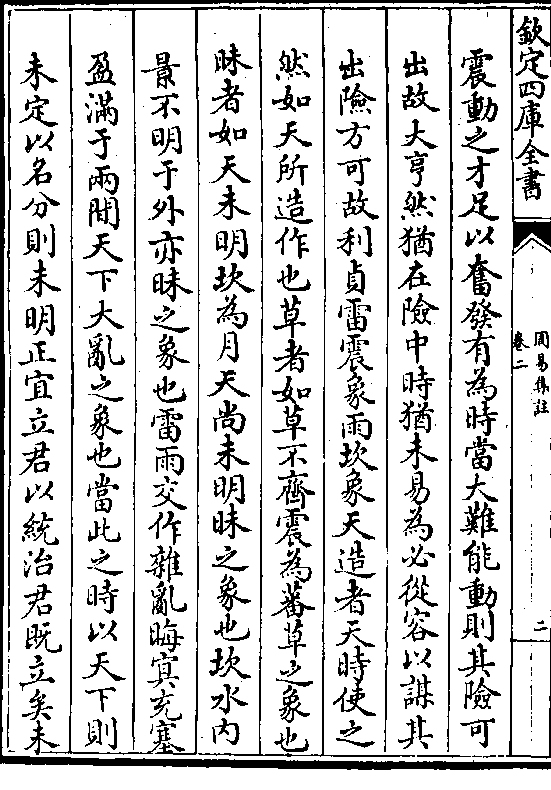 欽定四庫全書
周易集註
卷二
二
震動之才足以奮發有為時當大難能動則其險可
出故大亨然猶在險中時猶未易為必從容以謀其
出險方可故利貞雷震象雨坎象天造者天時使之
然如天所造作也草者如草不齊震為蕃草之象也
昧者如天未明坎為月天尚未明昧之象也坎水内
景不明于外亦昧之象也雷雨交作雜亂晦冥充塞
盈滿于兩間天下大亂之象也當此之時以天下則
未定以名分則未明正宜立君以統治君既立矣未